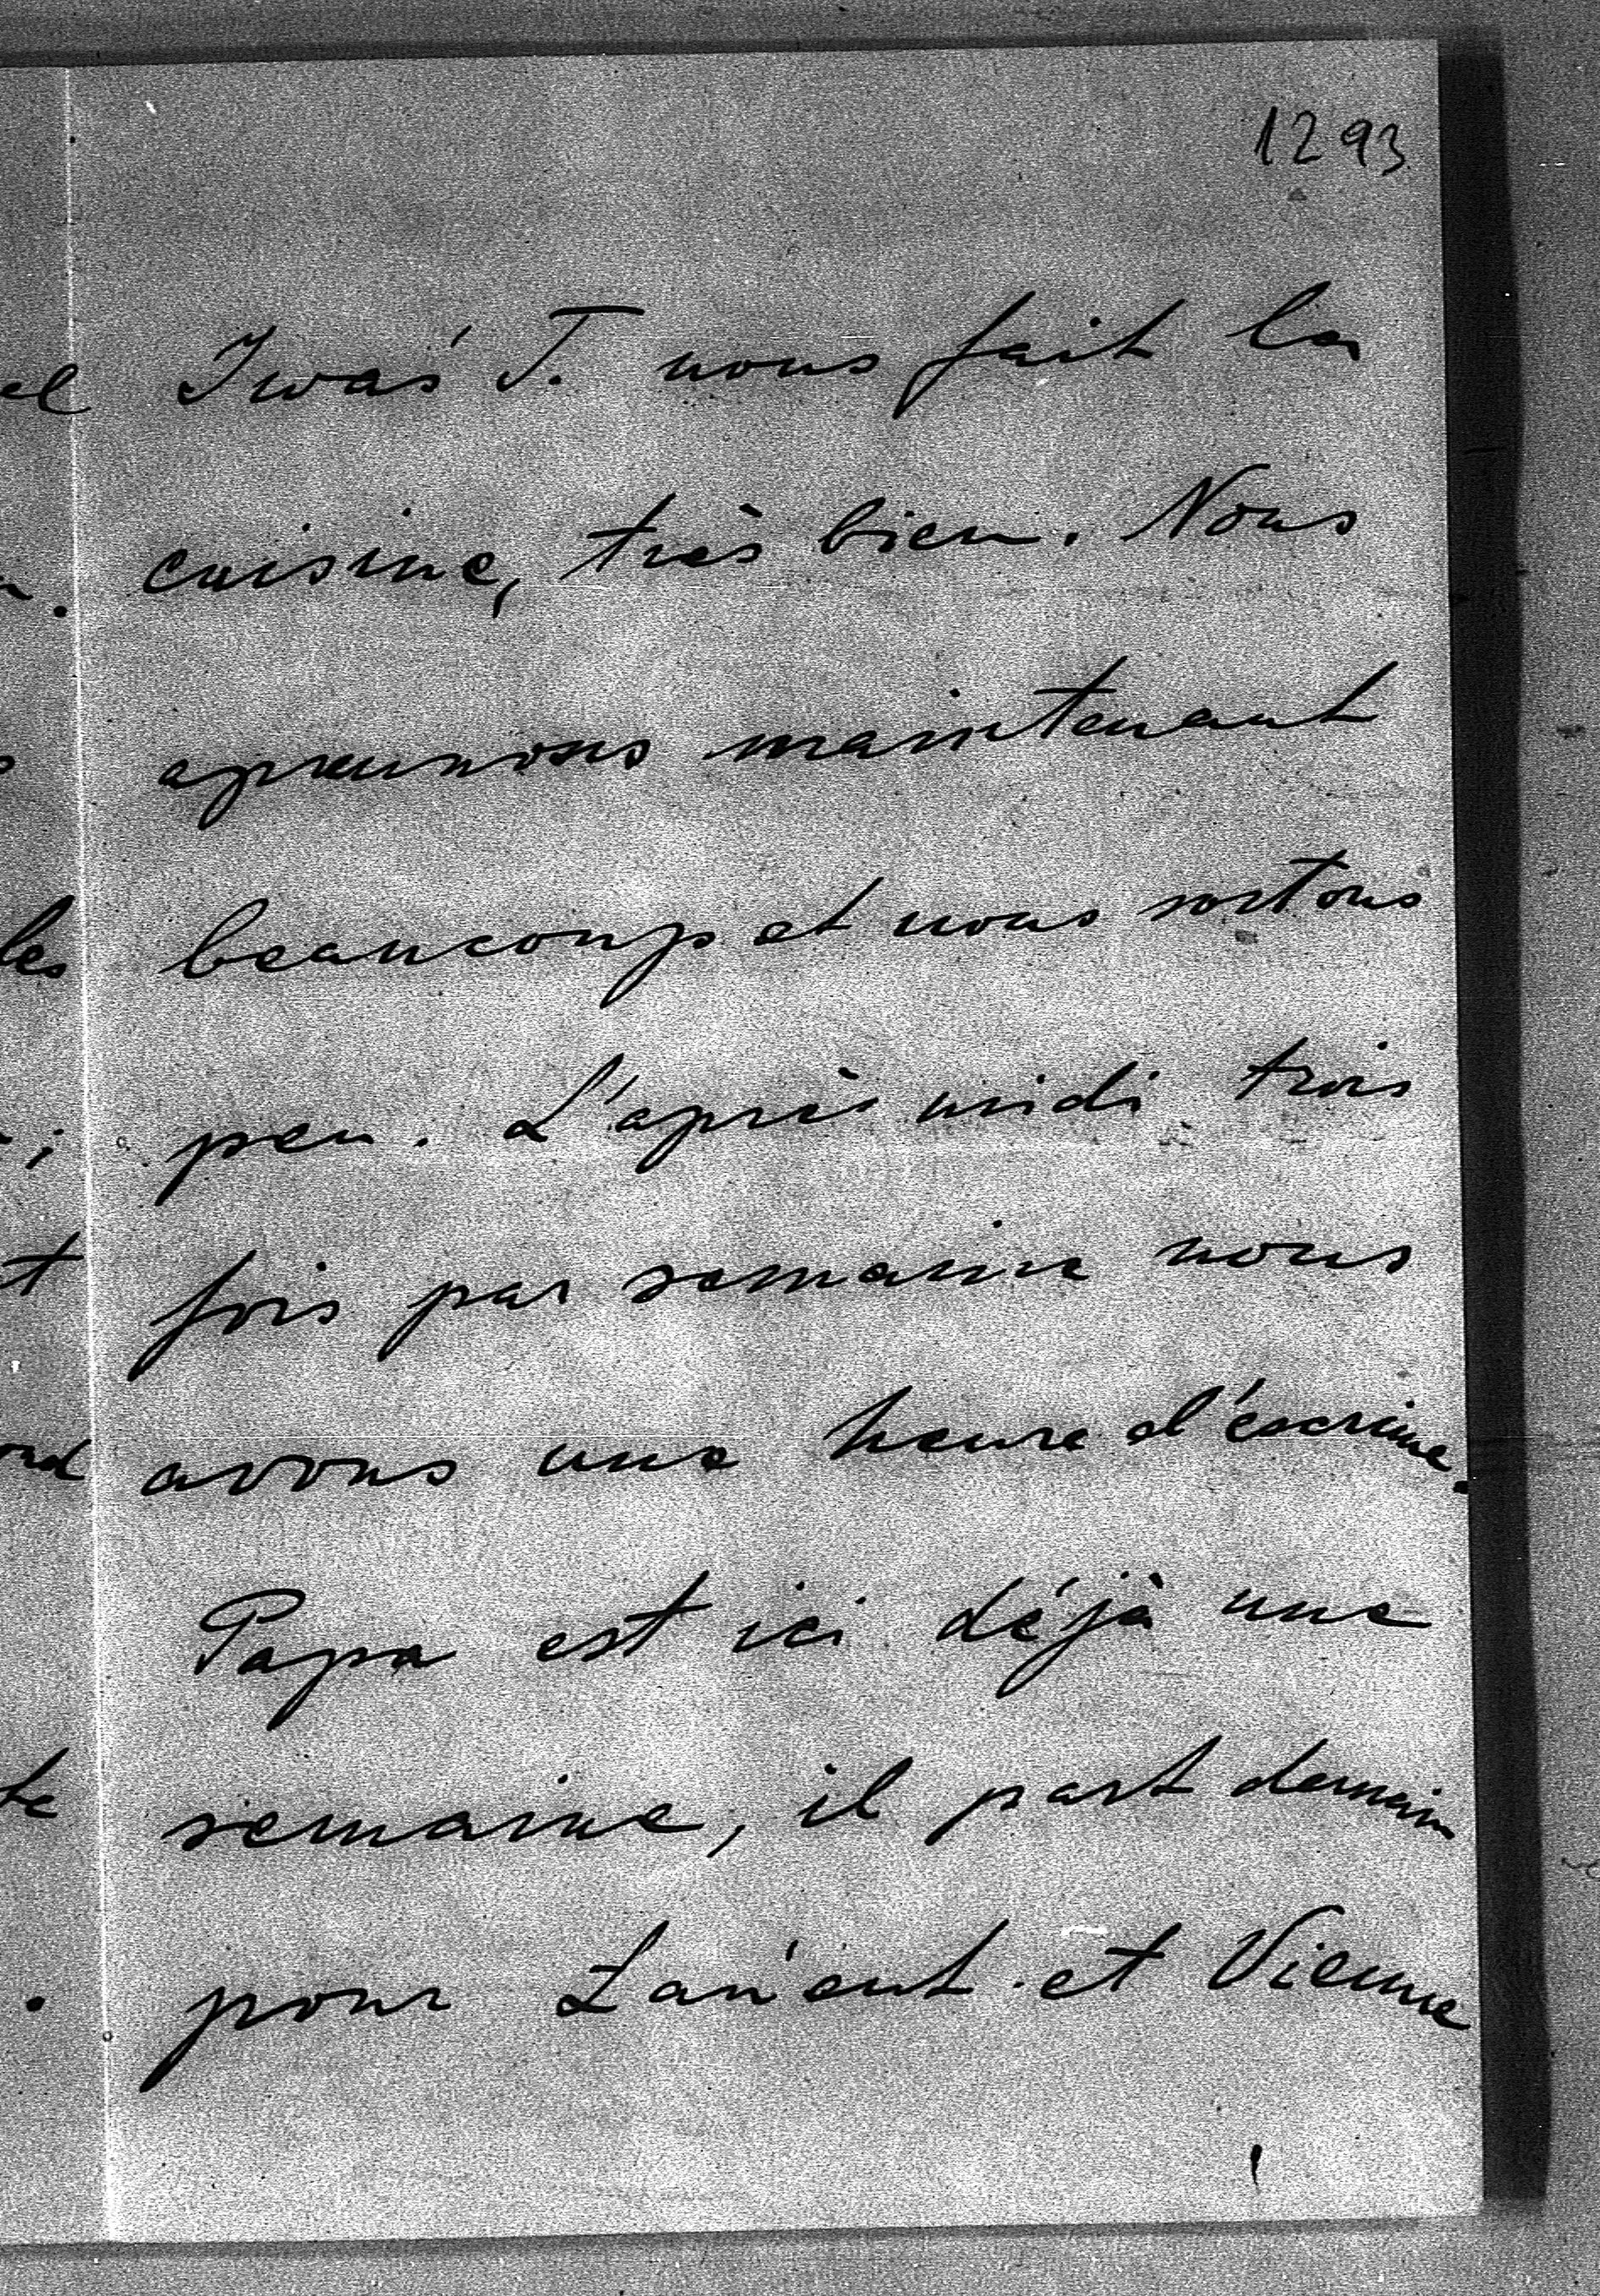 1293
Iwaś T. nous fait la
cuisine, très bien. Nous
aprennons maintenant
beaucoup et nous sortons
les
peu. L'après midi trois
fois par semaine nous
avons une heure d'éscrime.
Papa est ici déjà une
semaine, il part demain
pour Łańcut et Vienne